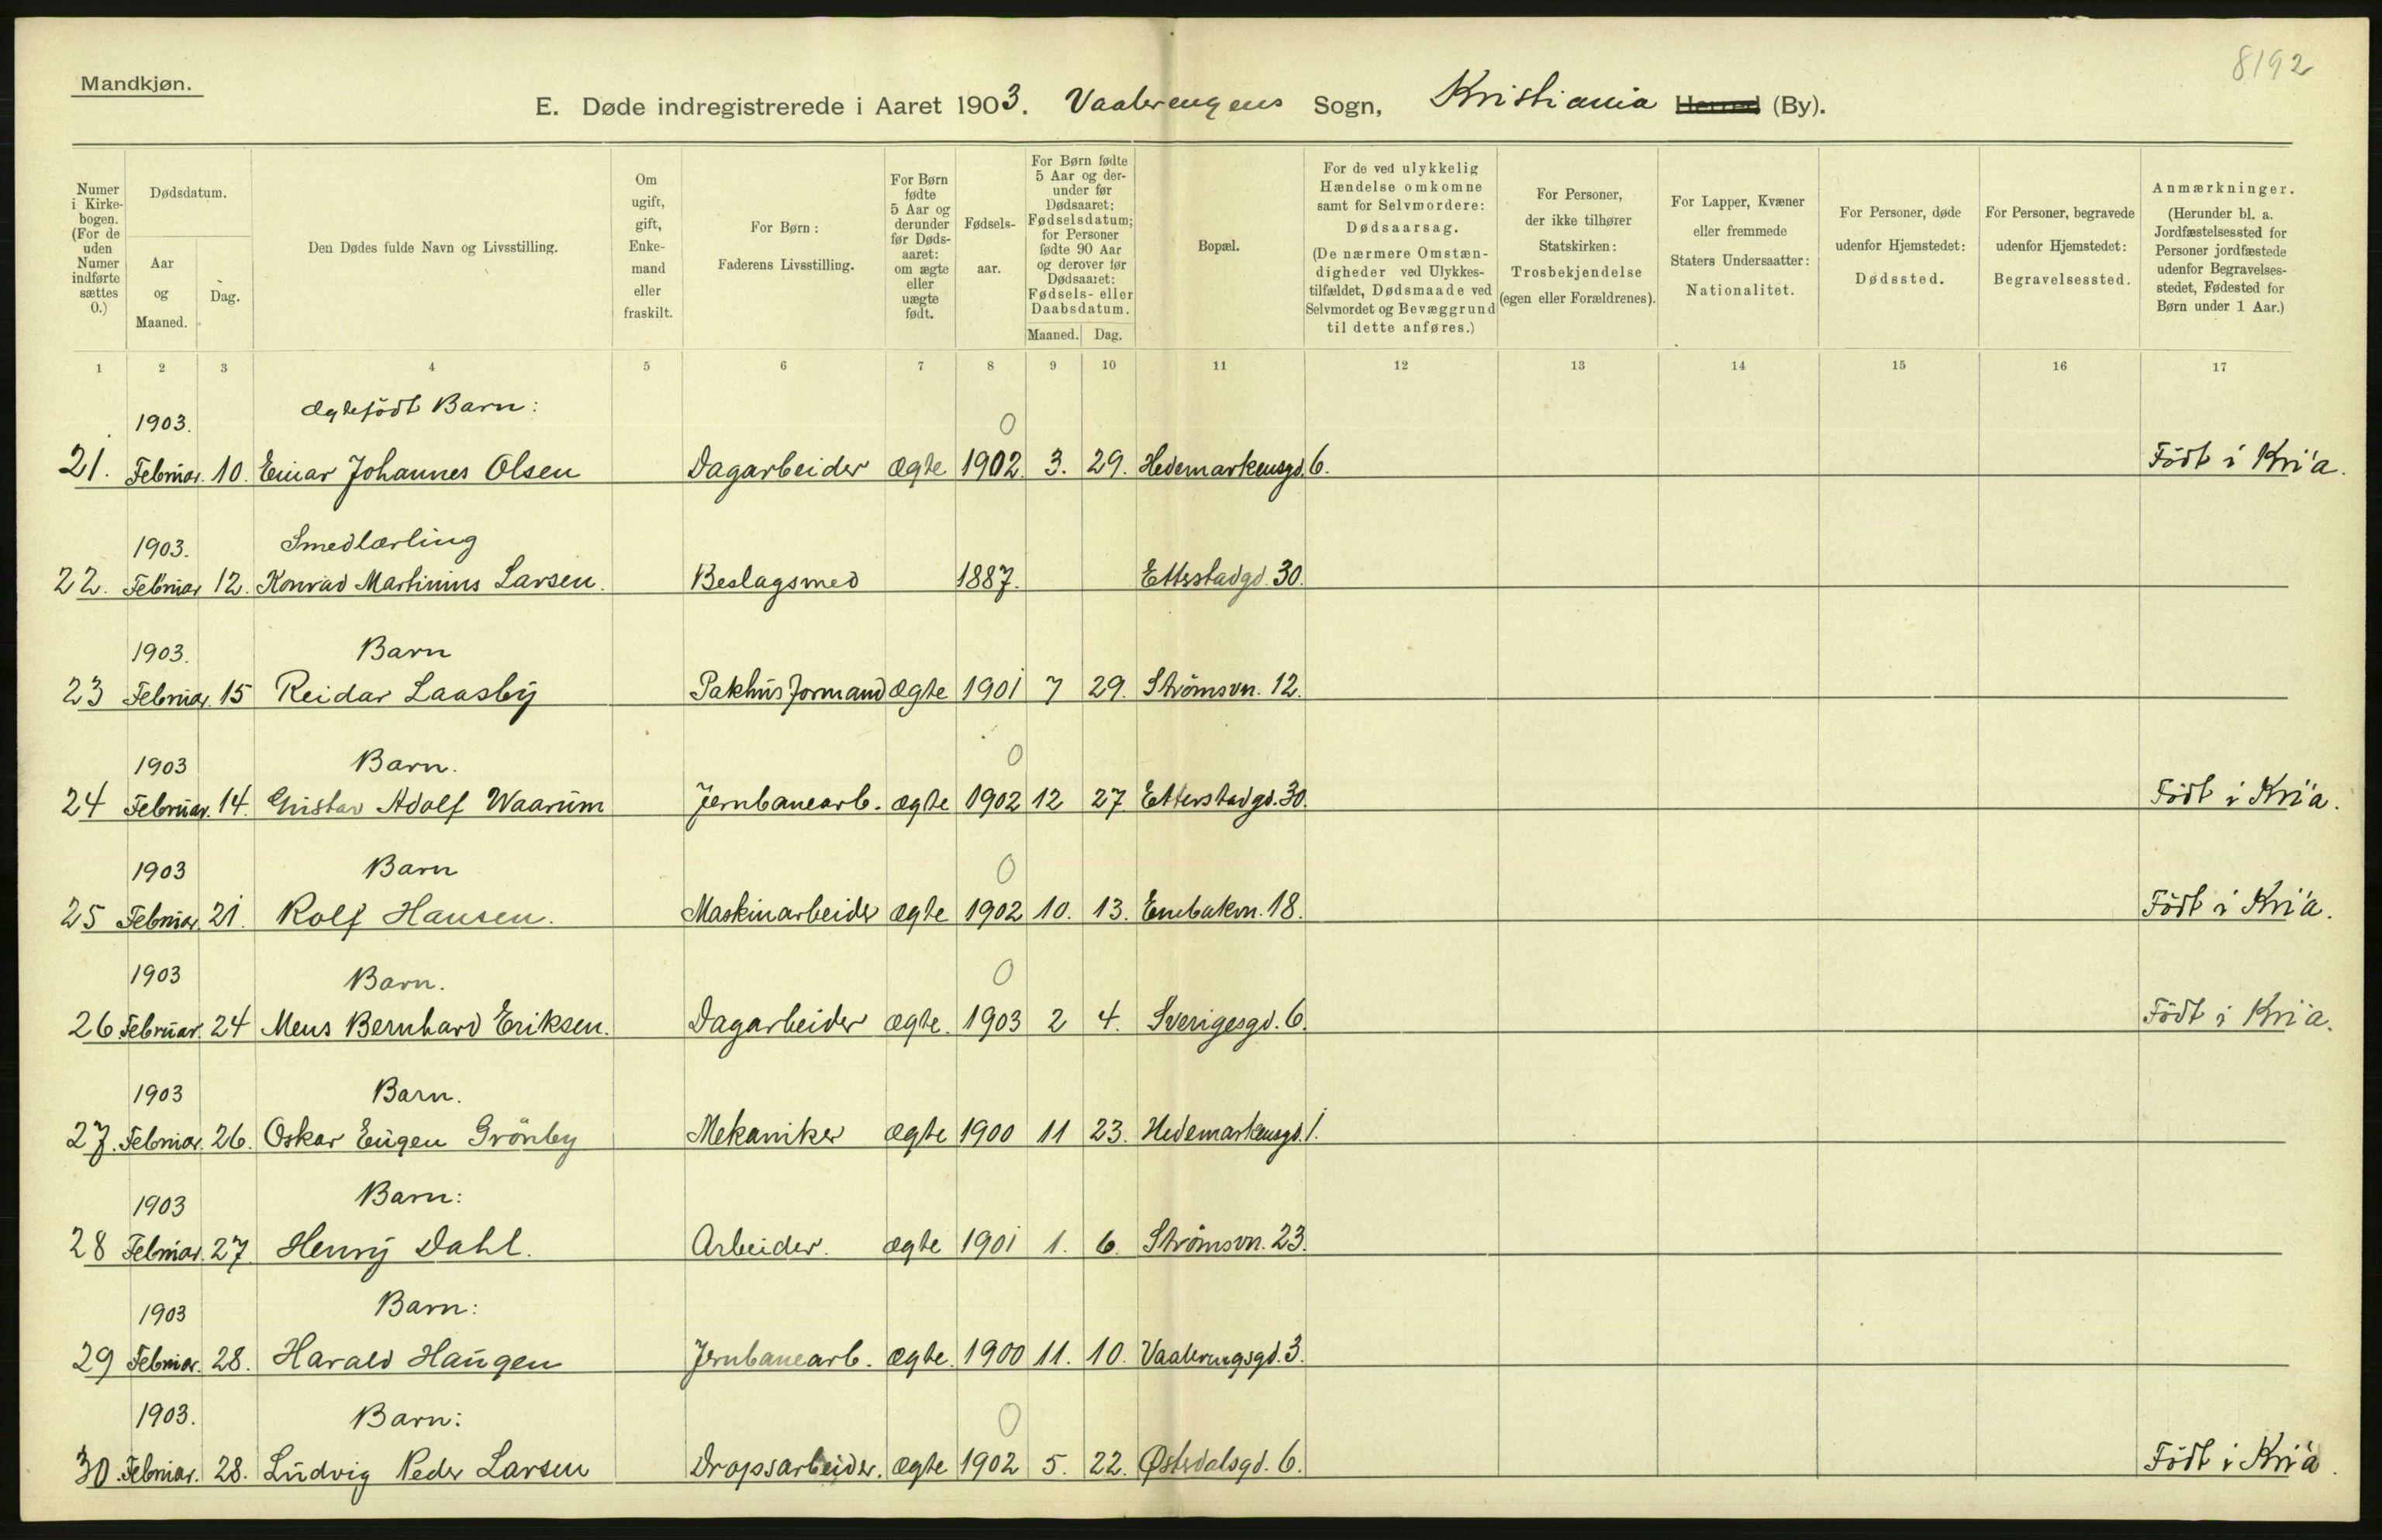 8192
Mandkjøn.
E. Døde indregistrerede i Aaret 1903. Vaalerengens Sogn, Kristiania Herred (By).
Numer i Kirkebogen. (For de uden Numer indførte sættes 0.)
Dødsdatum.
Aar og Maaned.
Dag.
Den Dødes fulde Navn og Livsstilling.
Om ugift, gift, Enkemand eller fraskilt.
For Børn: Faderens Livsstilling.
For Børn fødte 5 Aar og derunder før Dødsaaret: om ægte eller uægte født.
Fødselsaar.
For Børn fødte 5 Aar og derunder før Dødsaaret: Fødselsdatum; for Personer fødte 90 Aar og derover før Dødsaaret: Fødsels- eller Daabsdatum.
Maaned. Dag.
Bopæl.
For de ved ulykkelig Hændelse omkomne samt for Selvmordere: Dødsaarsag. (De nærmere Omstændigheder ved Ulykkestilfældet, Dødsmaade ved Selvmordet og Bevæggrund til dette anføres.)
For Personer, der ikke tilhører Statskirken: Trosbekjendelse (egen eller Forældrenes).
For Lapper, Kvæner eller fremmede Staters Undersaatter: Nationalitet.
For Personer, døde udenfor Hjemstedet: Dødssted.
For Personer, begravede udenfor Hjemstedet: Begravelsessted.
Anmærkninger. (Herunder bl. a. Jordfæstelsessted for Personer jordfæstede udenfor Begravelsesstedet, Fødested for Børn under 1 Aar.)
1 2 3 4 5 6 7 8 9 10 11 12 13 14 15 16 17
1903. Ægtefödt Barn: 0
21. Februar. 10. Einar Johannes Olsen Dagarbeider ægte 1902. 3. 29. Hedemarkensgd. 6. Födt i Kri'a.
1903. Smedlærling
22. Februar 12. Konrad Martinius Larsen. Beslagsmed 1887. Etterstadgd. 30.
1903. Barn
23 Februar. 15 Reidar Laasby Pakhusformand ægte 1901 7 29. Strömsvn. 12.
1903 Barn. 0
24 Februar. 14. Gustav Adolf Waarum Jernbanearb. ægte 1902 12 27 Etterstadgd. 30. Födt i Kri'a.
1903 Barn 0
25 Februar. 21. Rolf Hansen. Maskinarbeider ægte 1902 10. 13. Enebakvn. 18. Födt i Kri'a.
1903 Barn. 0
26 Februar. 24 Mens Bernhard Eriksen. Dagarbeider ægte. 1903 2 4. Sverigesgd. 6. Födt i Kri'a.
1903 Barn.
27. Februar. 26. Oskar Eugen Grönby Mekaniker ægte 1900 11 23. Hedemarkensgd. 1.
1903 Barn:
28 Februar. 27 Henry Dahl. Arbeider. ægte 1901 1. 6. Strömsvn. 23.
1903 Barn:
29 Februar. 28. Harald Haugen Jernbanearb. ægte. 1900 11. 10. Vaalerengsgd. 3.
1903. Barn: 0
30. Februar. 28. Ludvig Peder Larsen Dropsarbeider. ægte 1902 5. 22. Østerdalsgd. 6. Födt i Kri'a.